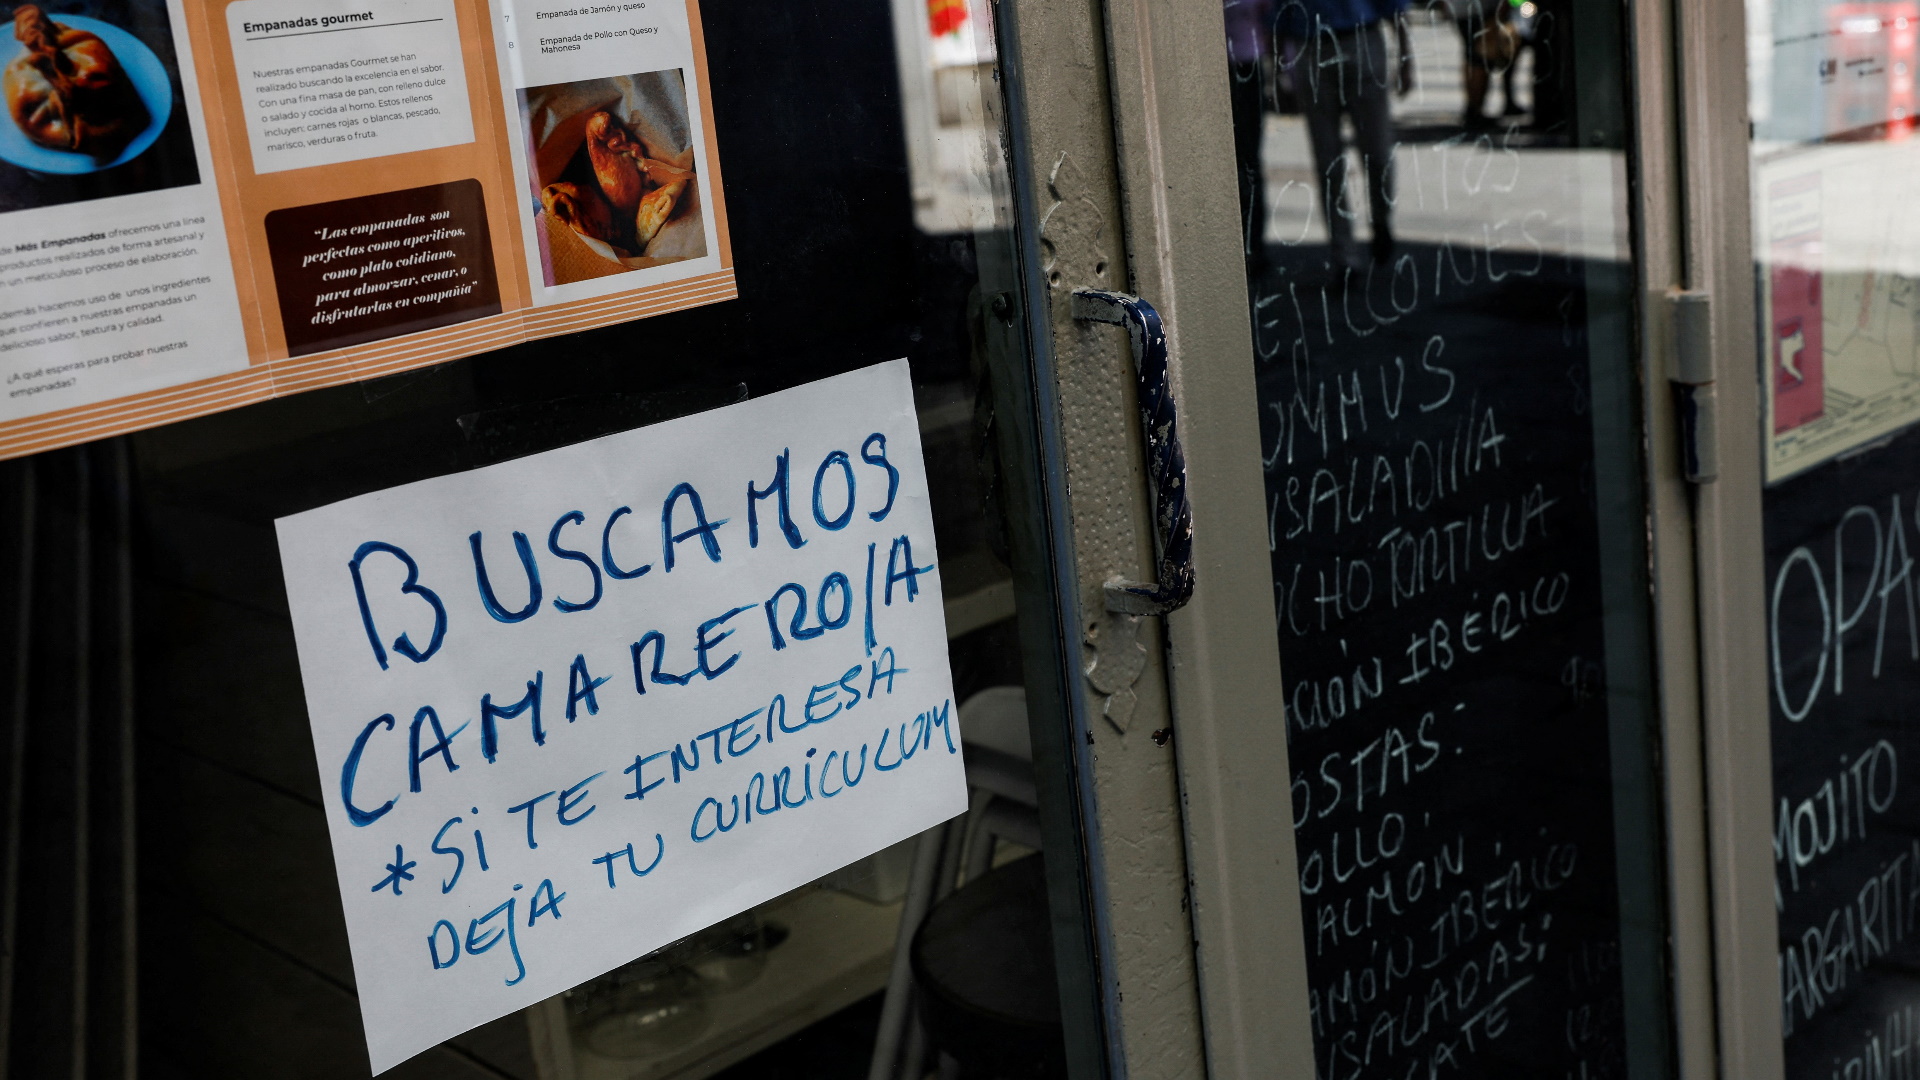 Empanadas gourmet
Nuestras empanadas Gourmet se han
realizado buscando la excelencia en el sabor.
Con una fina masa de pan, con relleno dulce
o salado y cocida al horno. Estos rellenos
incluyen: carnes rojas o blancas, pescado,
marisco, verduras o fruta.
“Las empanadas son
perfectas como aperitivos,
como plato cotidiano,
para almorzar, cenar, o
disfrutarlas en compañía”
7 Empanada de Jamón y queso
8 Empanada de Pollo con Queso y
Mahonesa
de Más Empanadas ofrecemos una línea
productos realizados de forma artesanal y
n un meticuloso proceso de elaboración.
demás hacemos uso de unos ingredientes
que confieren a nuestras empanadas un
delicioso sabor, textura y calidad.
¿A qué esperas para probar nuestras
empanadas?
BUSCAMOS
CAMARERO/A
*SI TE INTERESA
DEJA TU CURRICULUM
EJILLONES
OMMUS
NSALADILLA
OCHO TORTILLA
CIÓN IBÉRICO
OSTAS:
OLLO.
ALMON.
AMÓN IBÉRICO
NSALADAS:
CATE
OPAS
MOJITO
MARGARITA